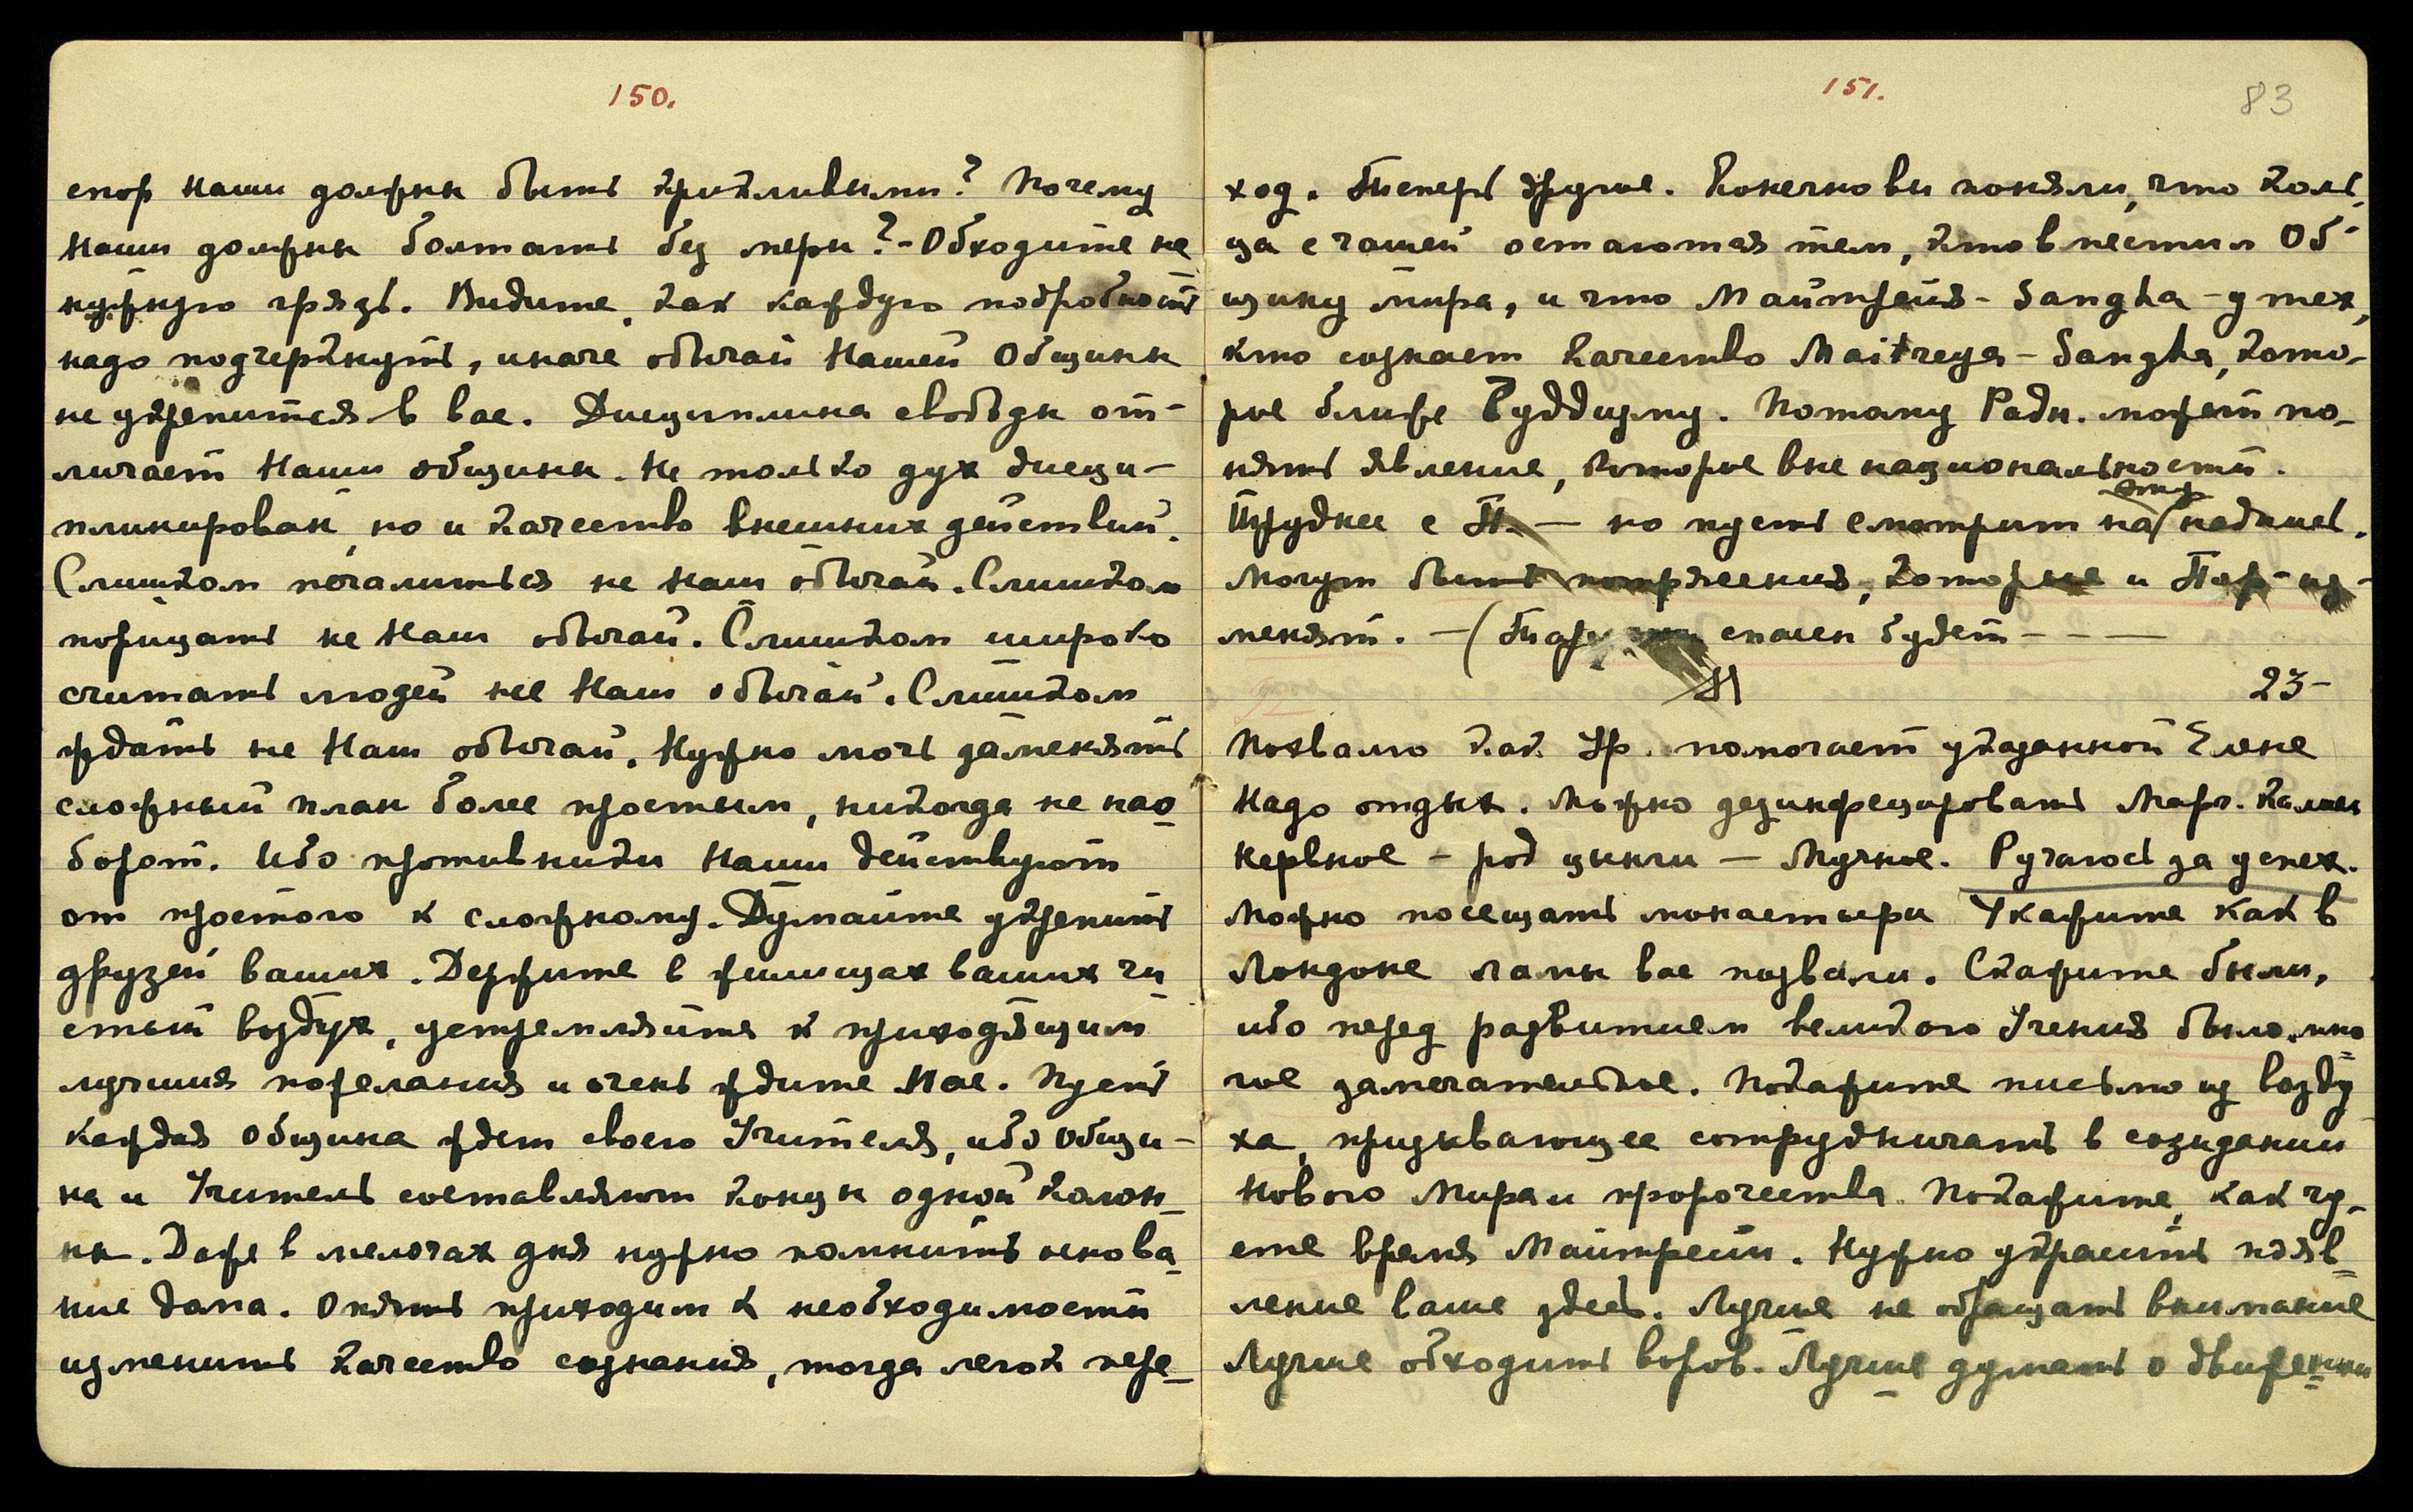 150.
спор Наши должны быть крикливыми? Почему
Наши должны болтать без меры? - Обходите не
нужную грязь. Видите, как каждую подробность
надо подчеркнуть, иначе обычай Нашей Общины
не укрепится в вас. Дисциплина свободы от-
личает Наши общины. Не только дух дисци-
плинирован, но и качество внешних действий.
Слишком печалиться не Наш обычай. Слишком
порицать не Наш обычай. Слишком широко
считать людей не Наш обычай. Слишком
ждать не Наш обычай. Нужно мочь заменять
сложный план более простым, никогда не нао
борот. Ибо противники Наши действуют
от простого к сложному. Думайте укрепить
друзей ваших. Держите в жилищах ваших чи
стый воздух, устремляйте к приходящим
лучшия пожелания и очень ждите Нас. Пусть
каждая Община ждет своего Учителя, ибо Общи-
на и Учитель составляют концы одной колон-
ны. Даже в мелочах дня нужно помнить основа
ние дома. Опять приходим к необходимости
изменить качество сознания, тогда легок пере-
151.
83
ход. Теперь другое. Конечно вы поняли, что коль
ца с чашей остаются тем, кто вместил Об-
щину мира, и что Майтрейя - Sangha - у тех,
кто сознает качество Maitreya - Sangha, кото-
рое ближе Буддизму. Потому Радн. может по-
нять явление, которое вне национальности.
Труднее с П. — но пусть смотрит на эту надпись.
Могут быть потрясения, которые и Пор- из-
менят. - ( спасен будет - - —
23-
Похвалю как Ур. помогает указанной Елене
Надо отдых. Можно дезинфецировать Марг. Калием
Нервное - род цынги — Мучное. Ручаюсь за успех.
Можно посещать монастыри Укажите как в
Лондоне ламы вас позвали. Скажите были,
ибо перед развитием великого Учения было мно
гое замечательное. Покажите письмо из возду
ха, призывающее сотрудничать в созидании
Нового Мира и пророчества. Покажите, как чу-
ете время Майтрейи. Нужно украсить появ
ление ваше здесь. Лучше не обращать внимание
Лучше обходить воров. Лучше думать о движении